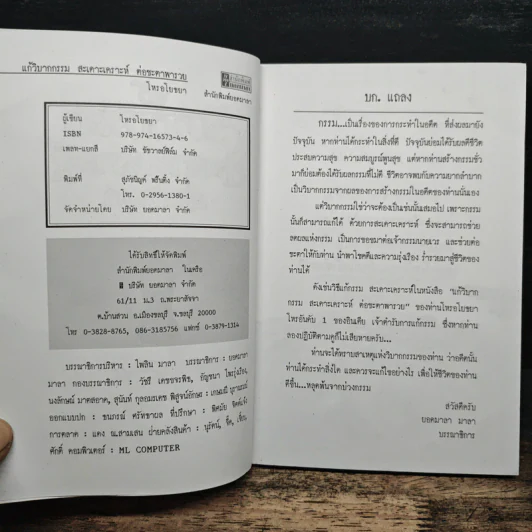 แก้วิบากกรรม สะเดาะเคราะห์ ต่อชะตาพารวย
โหรอโยธยา
สำนักพิมพ์ยอดมาลา
ผู้เขียน โหรอโยธยา
ISBN 978-974-16573-4-6
เพลท-แยกสี บริษัท ชัชวาลย์ฟิล์ม จำกัด
พิมพ์ที่ สุภัชนิญค์ พริ้นติ้ง จำกัด
โทร. 0-2956-1380-1
จัดจำหน่ายโดย บริษัท ยอดมาลา จำกัด
ได้รับสิทธิ์ให้จัดพิมพ์
สำนักพิมพ์ยอดมาลา ในเครือ
บริษัท ยอดมาลา จำกัด
61/11 ม.3 ถ.พระยาสัจจา
ต.บ้านสวน อ.เมืองชลบุรี จ.ชลบุรี 20000
โทร 0-3828-8765, 086-3185756 แฟกซ์ 0-3879-1314
บรรณาธิการบริหาร : ไพลิน มาลา บรรณาธิการ : ยอดมาลา
มาลา กองบรรณาธิการ : วัชรี เดชขจรพิช, กัญชนา
นงลักษณ์ มาตสอาด, สุนันท์ กุลอมรเดช พิสูจน์อักษร :
ออกแบบปก : ธนกรณ์ ศรัทธาผล ที่ปรึกษา : พิศมัย
การตลาด : แดง ณ.สามเสน ฝ่ายคลังสินค้า : นุรัตน์, จี๊ด,
ศักดิ์ คอมพิวเตอร์ : ML COMPUTER
บก. แถลง
กรรม...เป็นเรื่องของการกระทำในอดีต ที่ส่งผลมายัง
ปัจจุบัน หากท่านได้กระทำในสิ่งที่ดี ปัจจุบันย่อมได้รับผลดีชีวิต
ประสบความสุข ความสมบูรณ์พูนสุข แต่หากท่านสร้างกรรมชั่ว
มาก็ย่อมต้องได้รับผลกรรมที่ไม่ดี ชีวิตอาจพบกับความยากลำบาก
เป็นวิบากกรรมจากผลของการสร้างกรรมในอดีตของท่านนั่นเอง
แต่วิบากกรรมใช่ว่าจะต้องเป็นเช่นนั้นเสมอไป เพราะกรรม
นั้นก็สามารถแก้ได้ ด้วยการสะเดาะเคราะห์ ซึ่งจะสามารถช่วย
ลดผลแห่งกรรม เป็นการขอขมาต่อเจ้ากรรมนายเวร และช่วยต่อ
ชะตาให้กับท่าน นำพาโชคดีและความรุ่งเรือง ร่ำรวยมาสู่ชีวิตของ
ท่านได้
ดังเช่นวิธีแก้กรรม สะเดาะเคราะห์ในหนังสือ "แก้วิบาก
กรรม สะเดาะเคราะห์ ต่อชะตาพารวย" ของท่านโหรอโยธยา
โหรอันดับ 1 ของอินเดีย เจ้าตำรับการแก้กรรม ซึ่งหากท่าน
ลองปฏิบัติตามดูก็ไม่เสียหายครับ...
ท่านจะได้ทราบสาเหตุแห่งวิบากกรรมของท่าน ว่าอดีตนั้น
ท่านได้กระทำสิ่งใด และควรจะแก้ไขอย่างไร เพื่อให้ชีวิตของท่าน
ดีขึ้น...หลุดพ้นจากบ่วงกรรม
สวัสดีครับ
ยอดมาลา มาลา
บรรณาธิการ